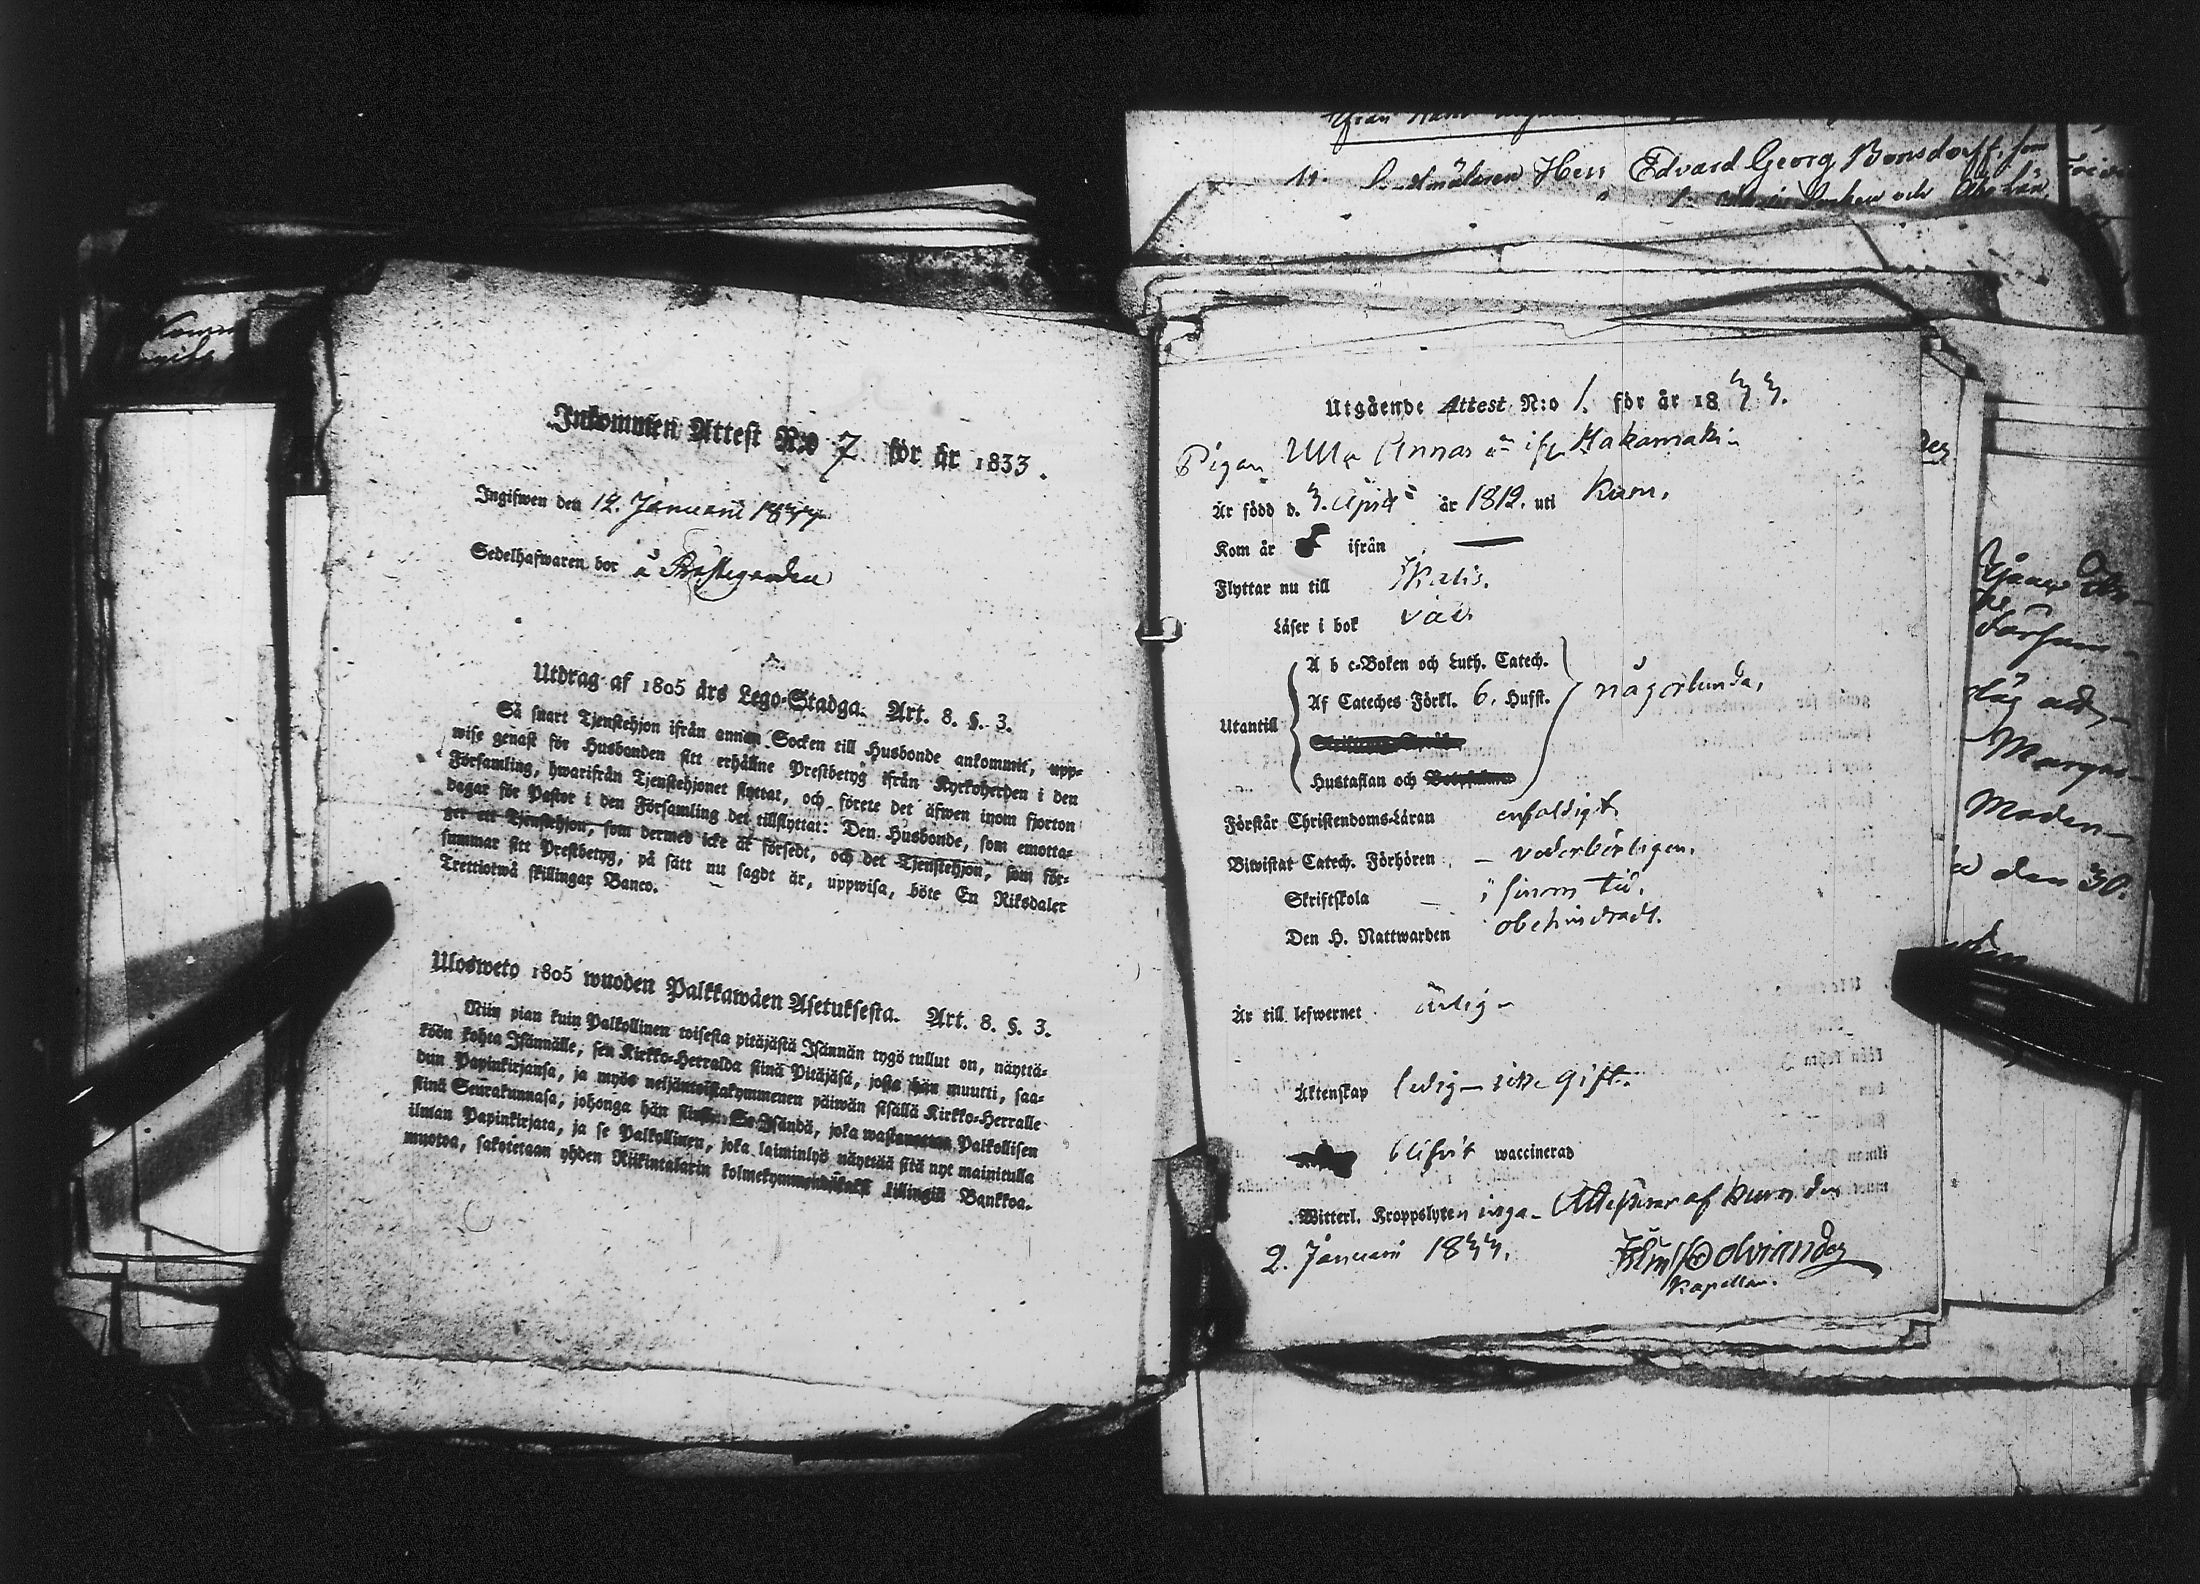 Inkommen Attest N:o 7 för år 1833.
Ingifwen den 12. Januarii 1833
Sedelhafwaren bor å Prestegården
Utdrag af 1805 års Lego-Stadga. Art. 8. §. 3.
Så snart Tjenstehjon ifrån annan Socken till Husbonde ankommit, upp-
wise genast för Husbonden sitt erhållne Prestbetyg ifrån Kyrkoherden i den
Församling, hwarifrån Tjenstehjonet flyttat, och förete det äfwen inom fjorton
dagar för Pastor i den Församling det tillflyttat: Den Husbonde, som emotta-
ger ett Tjenstehjon, som dermed icke är försedt, och det Tjenstehjon, som för-
summar sitt Prestbetyg, på sätt nu sagdt är, uppwisa, böte En Riksdaler
Trettiotwå skillingar Banco.
Ulosweto 1805 wuoden Palkkawäen Asetuksesta. Art. 8. §. 3.
Niin pian kuin Palkollinen toisesta pitäjästä Isännän tygö tullut on, näyttä-
köön kohta Isännälle, sen Kirkko-Herralda siinä Pitäjäsä, josta hän muutti, saa-
dun Papinkirjansa, ja myös neljäntoistakymmenen päiwän sisällä Kirkko-Herralle
siinä Seurakunnasa, johonga hän siirsin: Se Isändä, joka wastanottaa Palkollisen
ilman Papinkirjata, ja se Palkollinen, joka laiminlyö näyttää sitä nyt mainitulla
muotoa, sakotetaan yhden Riikintalarin kolmekymmendäkaksi killingill Bankkoa.
11. Landtmätaren Herr Edvard Georg Bonsdorff, som
och Åbo Län
Utgående Attest N:o 1. för år 1833.
Pigan Ulla Annas ifr. Hakamäki
Är född d. 3. April år 1812. uti Kumo.
Kom år ifrån —
Flyttar nu till Ikalis.
Läser i bok väl
Utantill
A b c-Boken och Luth. Catech.
Af Cateches Förkl. 6. Hufst.
Hustaflan och
någorlunda,
Förstår Christendoms-Läran enfaldigt
Biwistat Catech. Förhören — vederbörligen.
Skriftskola — i sinom tid.
Den H. Nattwarden obehindradt.
Är till lefwernet ärlig
Äktenskap ledig — icke gift.
blifvit waccinerad
Witterl. Kroppslyten inga — Attesterar af Kumo den
2. Januarii 1833.
Kapellan.
Församl-
Margar-
Moden-
den 30.